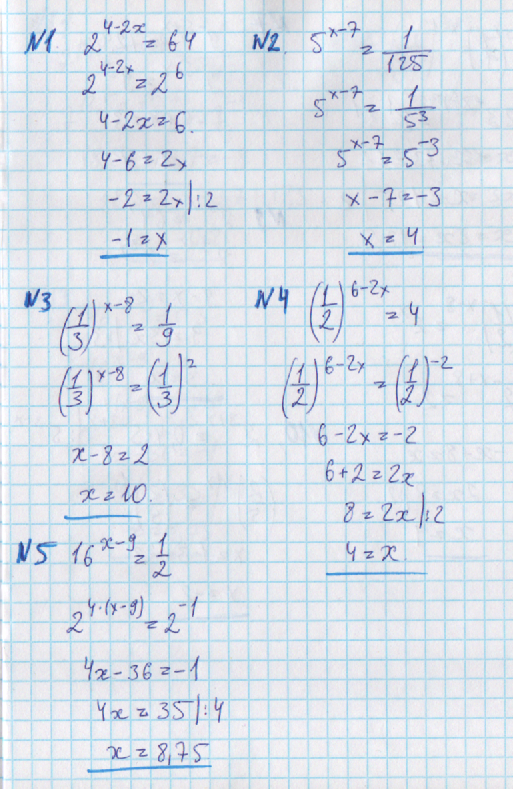 №1 2^(4-2x) = 64
2^(4-2x) = 2^6
4-2x=6.
4-6=2x
-2=2x|:2
-1=x
№2. 5^(x-7) = 1/125
5^(x-7) = 1/5^3
5^(x-7) = 5^(-3)
x-7=-3
x=4
№3 (1/3)^(x-8) = 1/9
(1/3)^(x-8) = (1/3)^2
x-8=2
x=10.
№4 (1/2)^(6-2x) = 4
(1/2)^(6-2x) = (1/2)^(-2)
6-2x=-2
6+2=2x
8=2x|:2
4=x
№5 16^(x-9) = 1/2
2^(4·(x-9)) = 2^(-1)
4x-36=-1
4x=35|:4
x=8,75